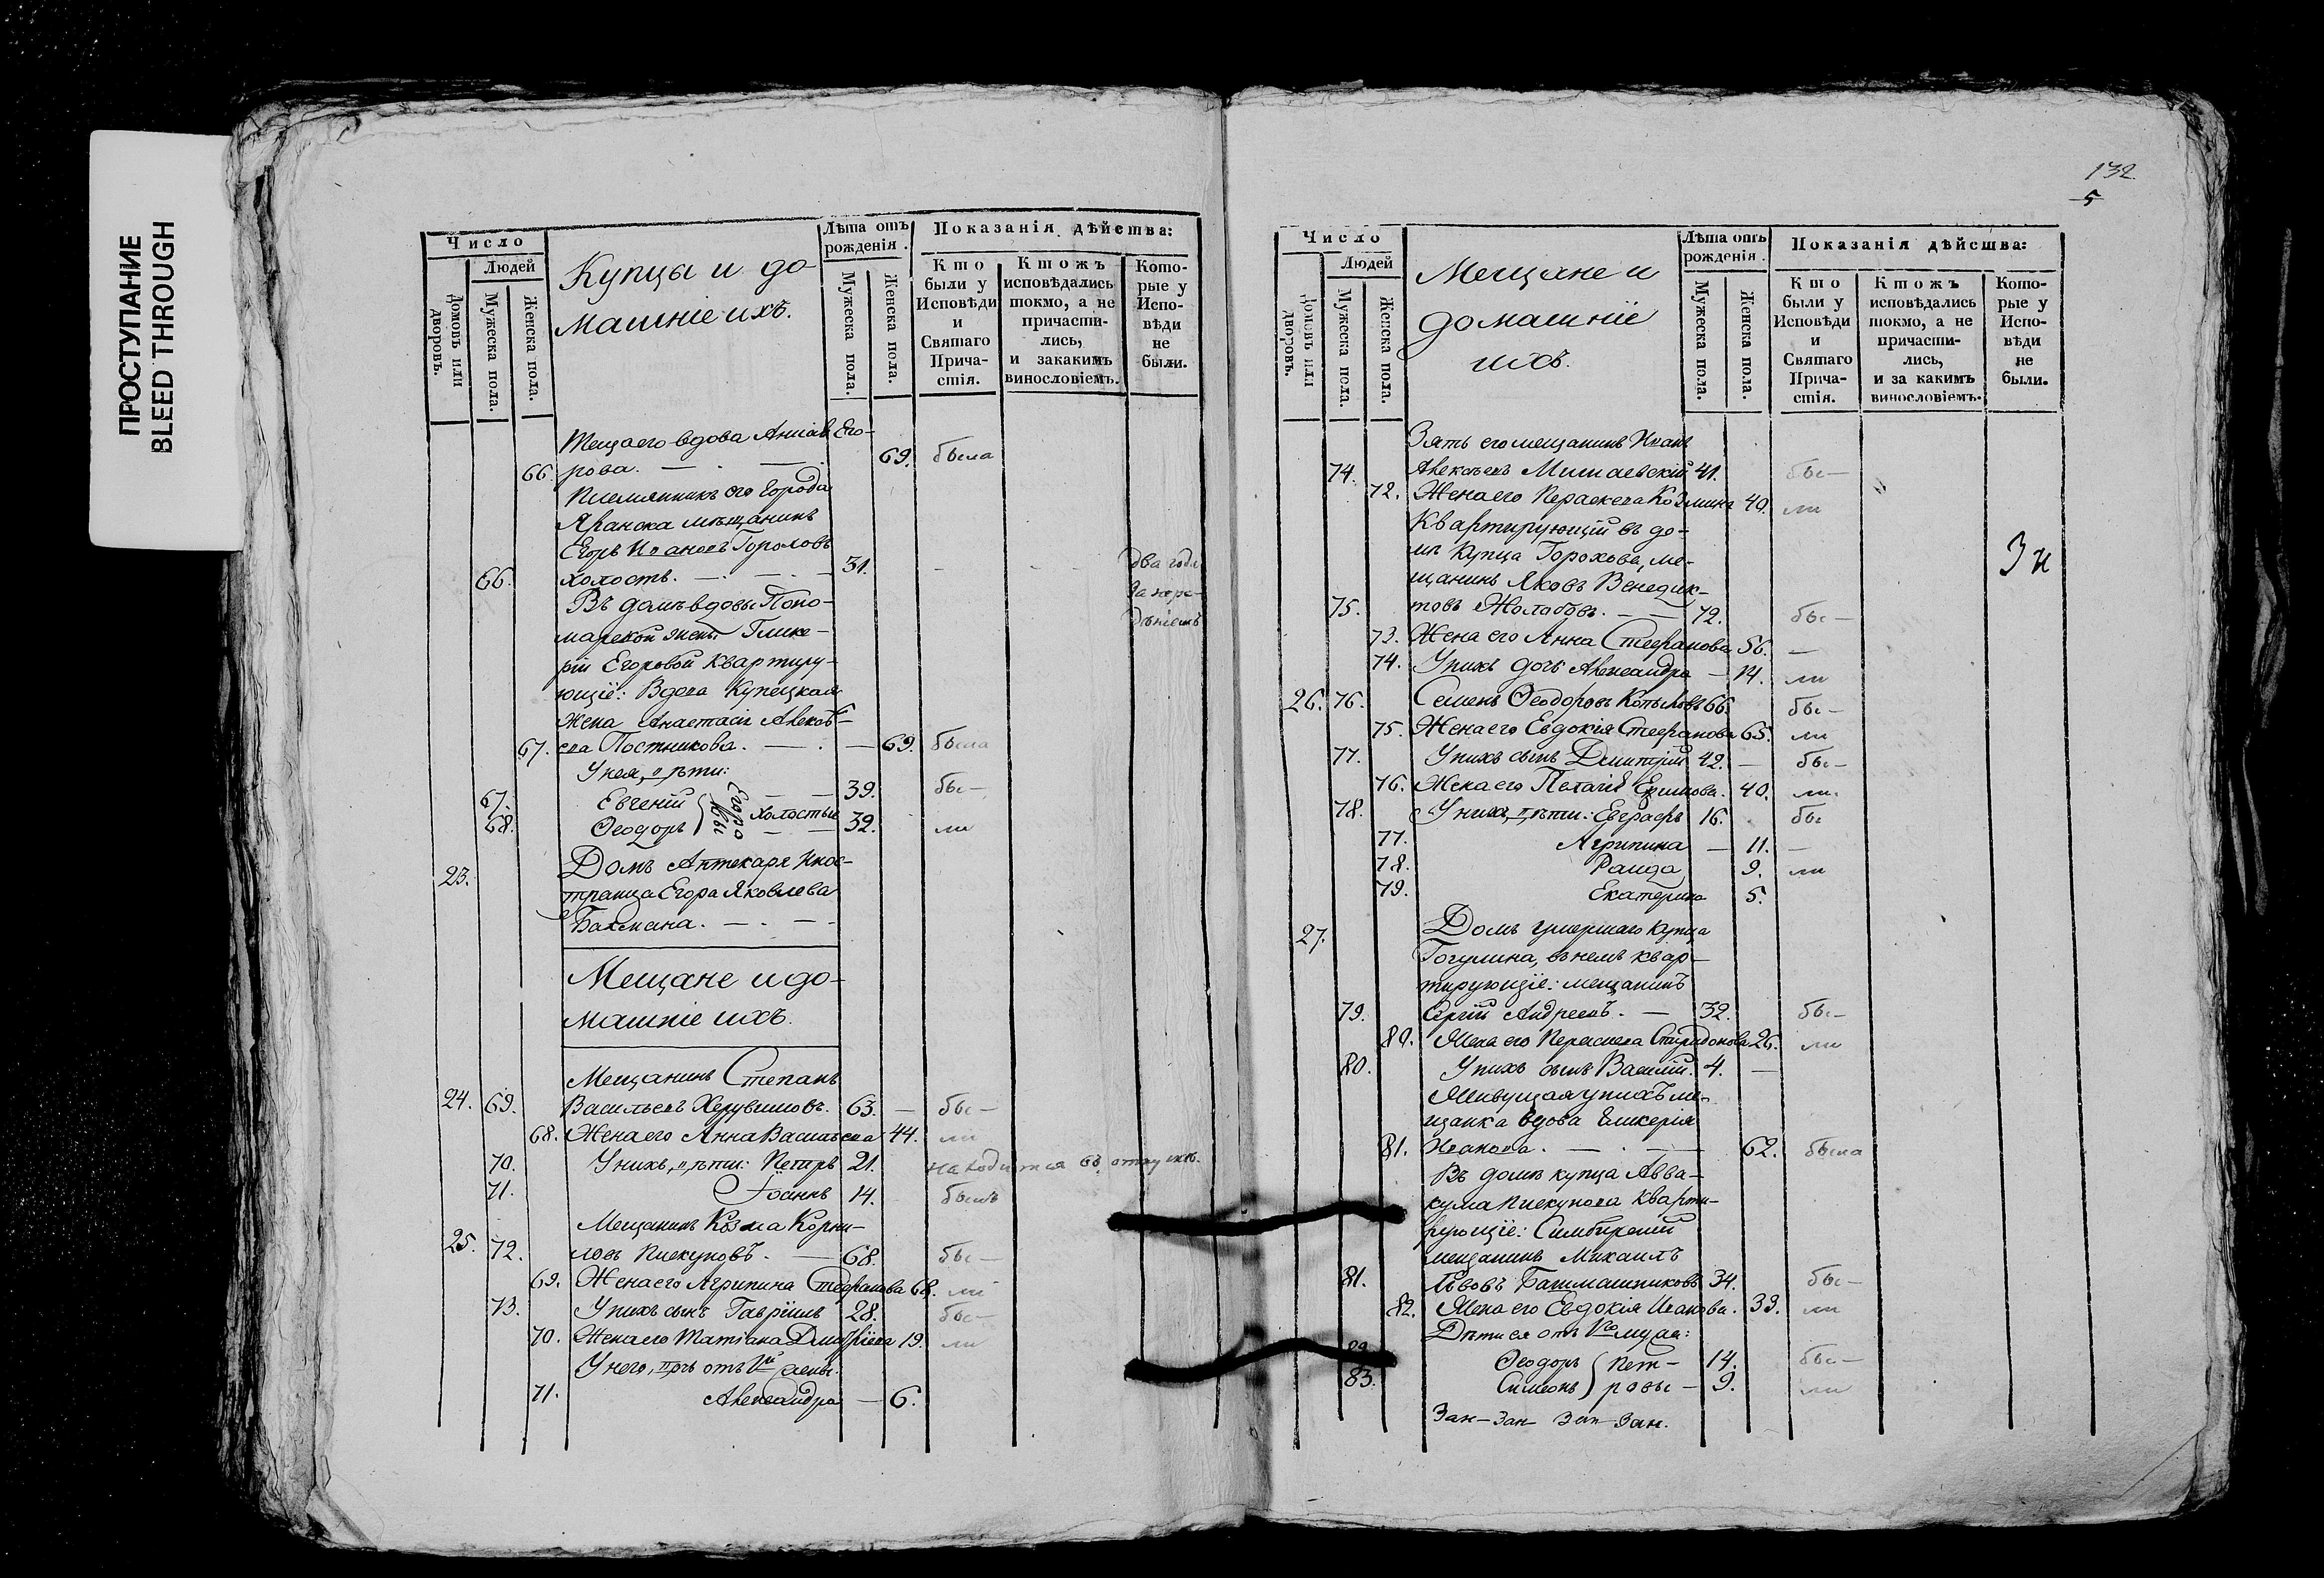 ПРОСТУПАНИЕ
BLEED THROUGH
Число
Людей
Домовъ или дворовъ.
Мужеска пола.
Женска пола.
Купцы и до-
машніе ихъ.
Лѣта отъ рожденія.
Мужеска пола.
Женска пола.
Показанія дѣйства:
Кто были у Исповѣди и Святаго Прича-стія.
Ктожъ исповѣдались токмо, а не причасти-лись, и закакимъ винословіемъ.
Кото-рые у Испо-вѣди не были.
Теща его вдова Аннa Его-
66. рова. — . — . 69. была
Племянникъ его города
Яранска мѣщанинъ
Егоръ Ивановъ Гороховъ
66. холостъ. — . — . — 31. два года
Въ домѣ вдовы Поно-
марской жены Глике-
ріи Егоровой квартиру-
ющіе: Вдова Купецкая
жена Анастасія Алексѣ-
67. ева Постникова. — . — 69. была
У нея дѣти:
67. Евгеній 39. бы-
68. Ѳеодоръ } Егоровы холостые 32. ли
23. Домъ Аптекаря Инос-
транца Егора Яковлева
Бахмана. — . — -
Мещане и до-
машніе ихъ.
Мещанинъ Степанъ
24. 69. Васильевъ Херувимовъ. 63. — бы-
68. Жена его Анна Васильева 44. ли
70. У нихъ дѣти: Петръ 21. находится въ отлучкѣ.
71. Іоаннъ 14. былъ
Мещанинъ Козма Корни-
25. 72. ловъ Пискуновъ. — 68. бы-
69. Жена его Агрипина Стефанова 68. ли
73. У нихъ сынъ Гавріилъ 28. бы-
70. Жена его Татіана Дмитріева 19. ли
У него дочь отъ 1й жены.
71. Александра — 6.
132.
5
Число
Людей
Домовъ или дворовъ.
Мужеска пола.
Женска пола.
Мещане и
домашніе
ихъ.
Лѣта отъ рожденія.
Мужеска пола.
Женска пола.
Показанія дѣйства:
Кто были у Исповѣди и Святаго Прича-стія.
Ктожъ исповѣдались токмо, а не причасти-лись, и за какимъ винословіемъ.
Кото-рые у Испо-вѣди не были.
Зять его мещанинъ Иванъ
74. Алексѣевъ 41. бы-
72. Жена его Параскева Козмина 40. ли
Квартирующій въ до-
мѣ Купца Горохова, ме-
щанинъ Яковъ Венедик-
75. товъ Жолобовъ. — — 72. бы-
73. Жена его Анна Стефанова 56. —
74. У нихъ дочь Александра — 14. ли
26. 76. Семенъ Ѳеодоровъ Копыловъ 66. бы-
75. Жена его Евдокія Стефанова 65. ли
77. У нихъ сынъ Дмитрій 42. — бы-
76. Жена его Пелагія Ефимова. 40. ли
78. У нихъ дѣти: Евграфъ 16. бы
77. Агрипина — 11. —
78. Раида 9. ли
79. Екатерина 5.
27. Домъ умершаго купца
Тогулина, въ немъ квар-
тирующіе: мещанинъ
79. Сергій Андреевъ. — 32. бы-
80. Жена его Параскева Спиридонова 26. ли
80. У нихъ сынъ Василій. 4. —
Живущая у нихъ ме-
щанка вдова Гликерія
81. Иванова. — . — 62. была
Въ домѣ купца Авва-
кума Пискунова кварти-
рующіе: Симбирскій
мещанинъ Михаилъ
81. Львовъ Башмашниковъ 34. бы-
82. Жена его Евдокія Иванова. 33. ли
Дѣти ея отъ 1го мужа:
82. Ѳеодоръ } Пет- 14. бы-
83. Симеонъ } ровы — 9. ли
Зан- Зан- Зан- Зан.